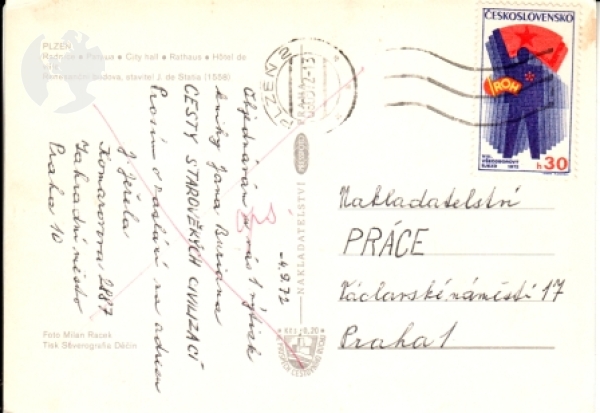 PLZEŇ
Radnice • Ратуша • City hall • Rathaus • Hôtel de ville
Renesanční budova, stavitel J. de Statia (1558)
Objednávám u vás 1 výtisk
knihy Jana Buriana
CESTY STAROVĚKÝCH CIVILIZACÍ
Prosím o zaslání na adresu
J. Ješula
Komárovova 2887
Zahradní město
Praha 10
Foto Milan Racek
Tisk Severografia Děčín
-4.9.72
NAKLADATELSTVÍ
PRAHA
PLZEŇ 2
ČESKOSLOVENSKO
ROH
VIII.
VŠEODBOROVÝ
SJEZD 1972
h 30
Nakladatelství
PRÁCE
Václavské náměstí 17
Praha 1